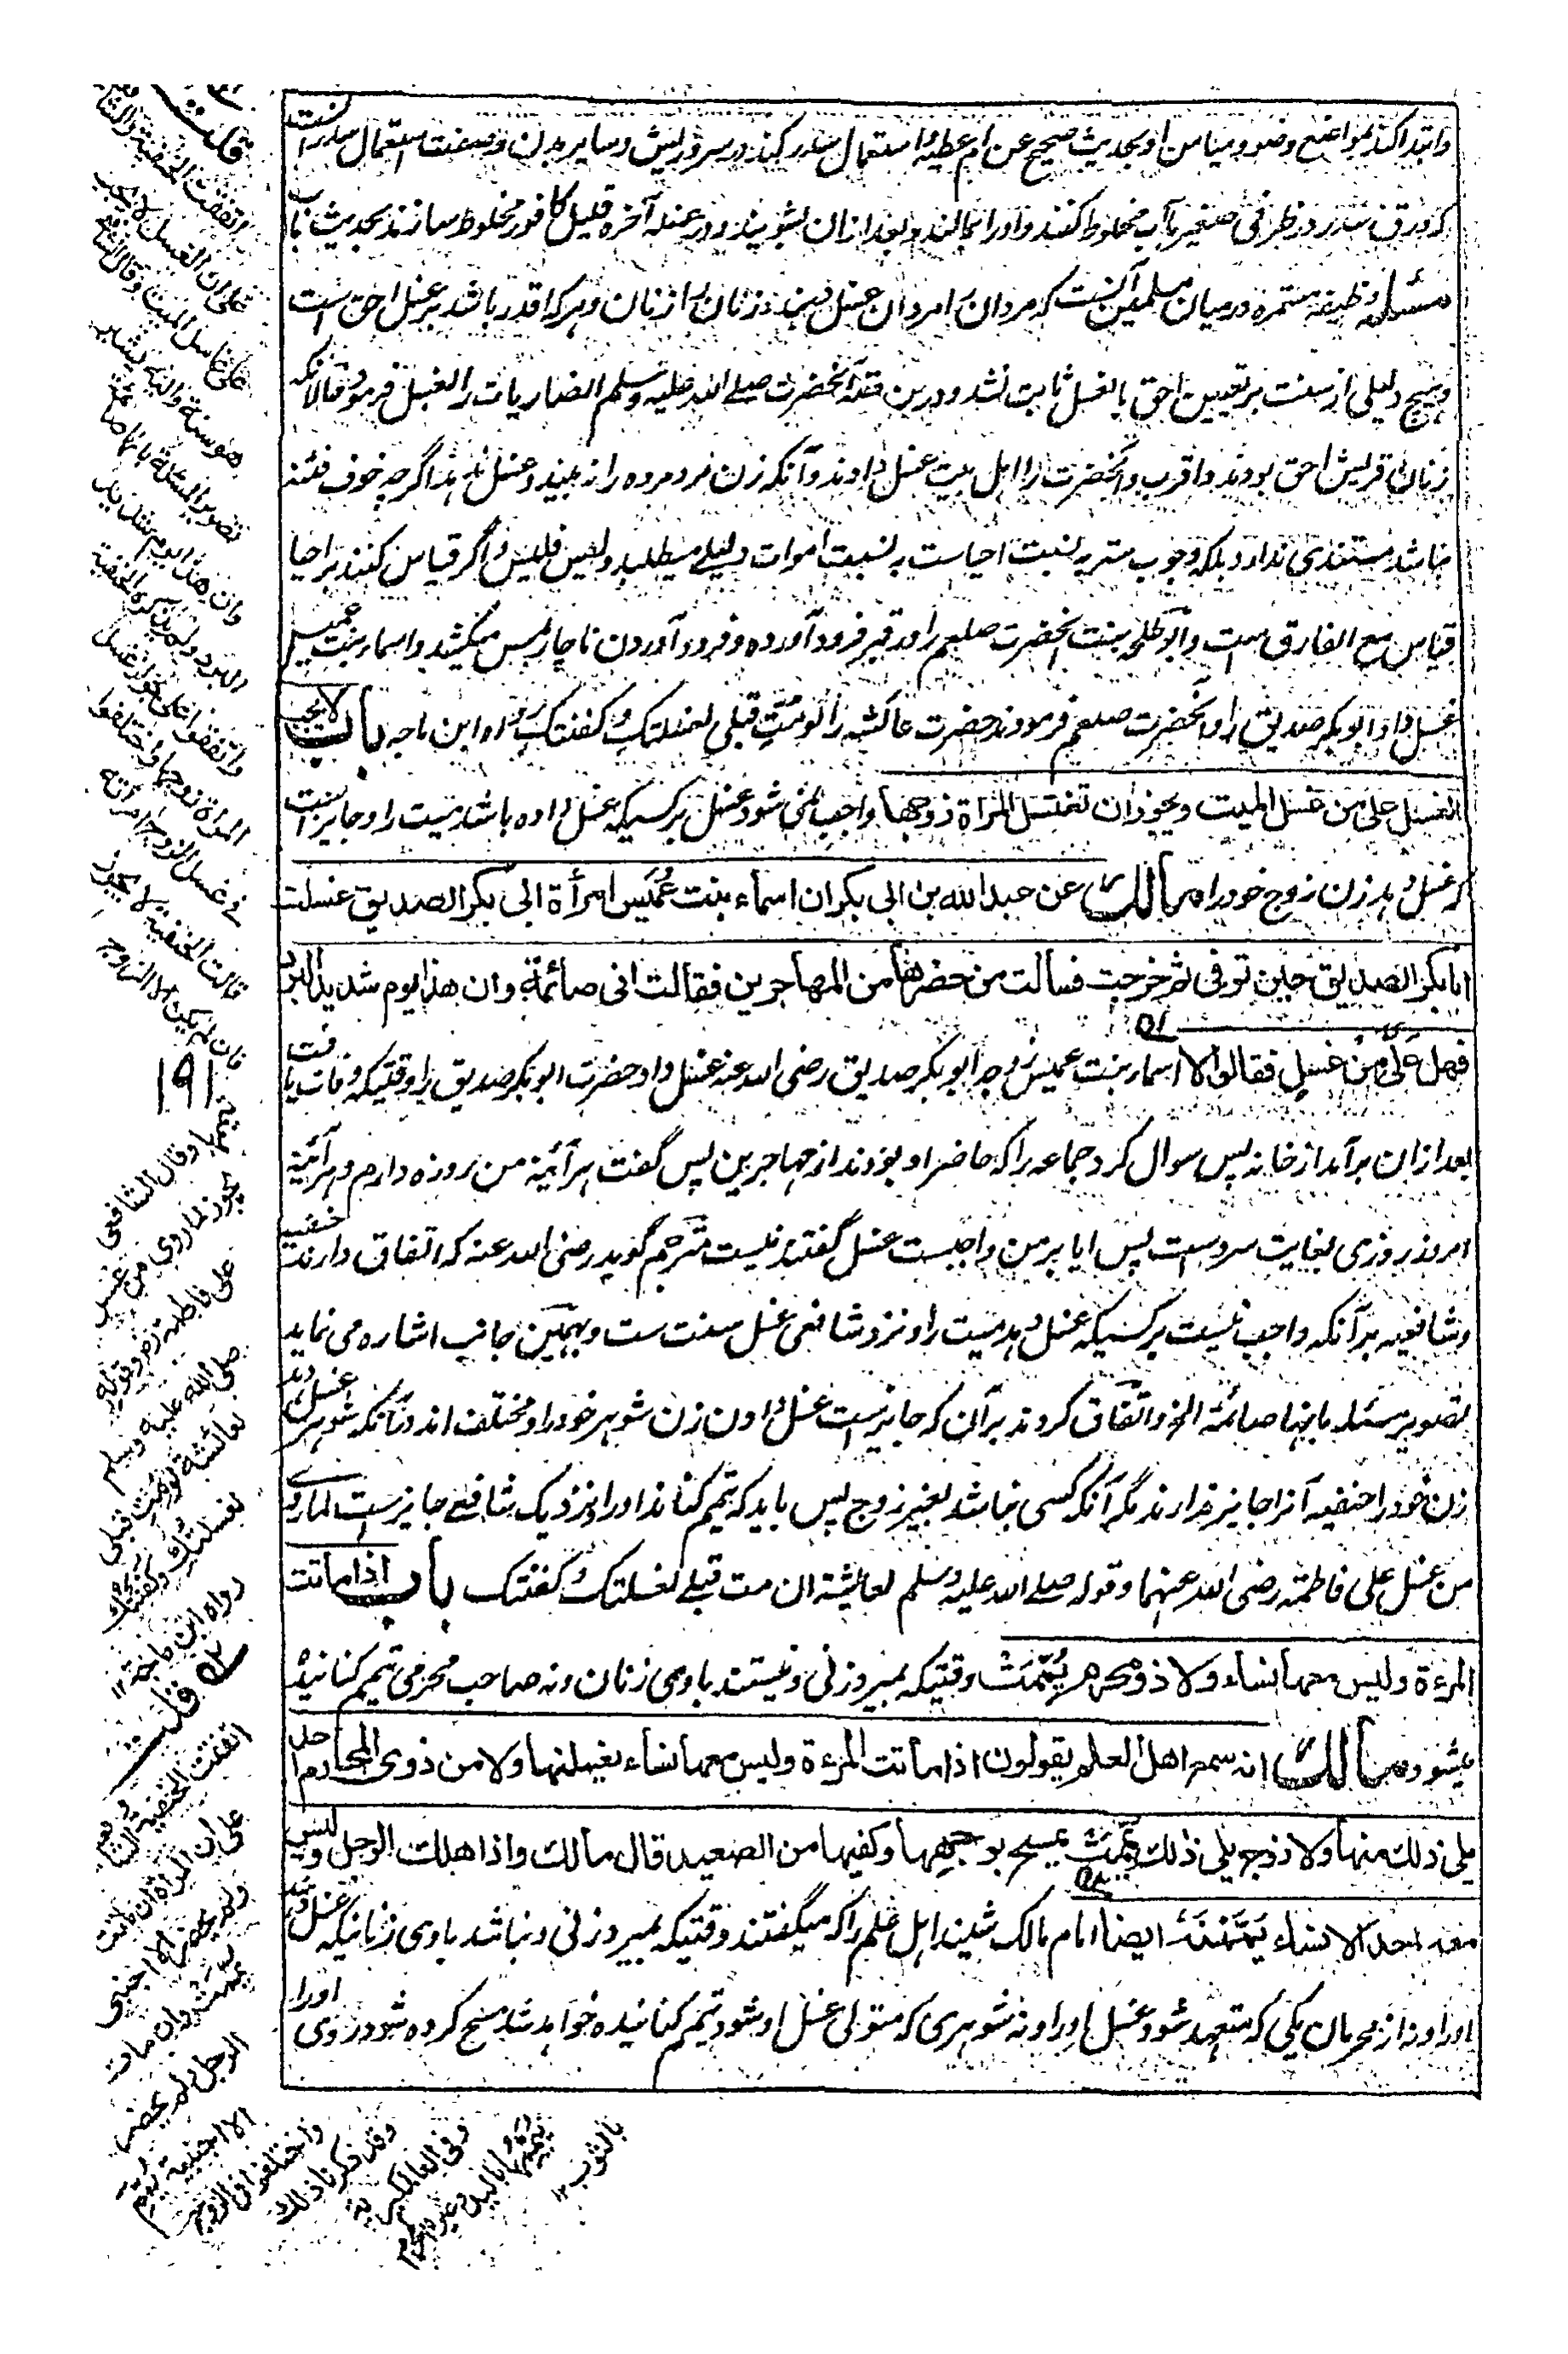 وابتدا کند بمواضع وضو و میامن او بحدیث صحیح عن ام عطیه و استعمال سدر کند در سر و ریش و سایر بدن و صفت استعمال سدر آنست
که ورق سدر در ظرفی صغیر با آب مخلوط کنند و او را بمالند و بعد ازان بشویند و در غسله آخره قلیل کافور مخلوط سازند بحدیث باب
مسئله وظیفه مستمره درمیان مسلمین آنست که مردان را مردان غسل دهند و زنان را زنان و هر که اقدر باشد بر غسل احق است
و هیچ دلیلی از سنت بر تعیین احق بالغسل ثابت نشد و درین قصه آنحضرت صلی الله علیه وسلم انصاریات را بغسل فرمود حالانکه
زنان قریش احق بودند و اقرب و آنحضرت را اهل بیت غسل دادند و آنکه زن مرد مرده را نه بیند و غسل ندهد اگرچه خوف فتنه
نباشد مستندی ندارد بلکه وجوب ستر به نسبت احیاست به نسبت اموات دلیلی میطلبد و لیس فلیس و اگر قیاس کنند بر احیا
قیاس مع الفارق است و ابو طلحه بنت آنحضرت صلعم را در قبر فرود آورده و فرود آوردن ناچار بمس میکشد و اسماء بنت عمیس
غسل داد ابوبکر صدیق را و آنحضرت صلعم فرمودند حضرت عائشه را لو مُتِّ قبلی لغسلتکِ و کفنتکِ رواه ابن ماجه باب لا یجب
الغسل علی من غسل المیت ویجوز ان تغتسل المرأة زوجها واجب نمی شود غسل بر کسیکه غسل داده باشد میت را و جایز است
که غسل دهد زن زوج خود را مالك عن عبدالله بن ابی بکر ان اسماء بنت عُمَیس امرأة ابی بکر الصدیق غسلت
ابابکر الصدیق حین توفی ثم خرجت فسألت من حضرها من المهاجرین فقالت انی صائمة وان هذا یوم شدید البرد
فهل عَلَیَّ مِن غسلٍ فقالوا لا اسماء بنت عمیس زوجه ابوبکر صدیق رضی الله عنه غسل داد حضرت ابوبکر صدیق را وقتیکه وفات یافت
بعد ازان برآمد از خانه پس سوال کرد جماعه را که حاضر او بودند از مهاجرین پس گفت هر آئینه من روزه دارم و هر آئینه
امروز روزی بغایت سرد ست پس ایا بر من واجبست غسل گفتند نیست مترجم گوید رضی الله عنه که اتفاق دارند حنفیه
و شافعیه بر آنکه واجب نیست بر کسیکه غسل دهد میت را و نزد شافعی غسل سنت ست و بهمین جانب اشاره می نماید
تصویر مسئله بانها صائمة الخ و اتفاق کردند بر آن که جایز است غسل دادن زن شوهر خود را و مختلف اند در آنکه شوهر غسل دهد
زن خود را حنفیه آنرا جایز ندارند مگر آنکه کسی نباشد بغیر زوج پس باید که تیمم کناند او را و نزدیک شافعی جایز ست لما روی
من غسل علی فاطمة رضی الله عنهما وقوله صلی الله علیه وسلم لعایشة ان مت قبلی لغسلتک و کفنتک باب اذا ماتت
المرءة ولیس معها نساء ولا ذو محرم یُتِّمَتْ وقتیکه بمیرد زنی و نیستند با وی زنان و نه صاحب محرمی تیمم کنانیده
میشود مالك انه سمع اهل العلم یقولون اذا ماتت المرءة ولیس معها نساء یغسلنها ولا من ذوی المحارم احد
یلی ذلك منها ولا زوج یلی ذلك یُمِّمَتْ یمسح بوجهها وکفیها من الصعید قال مالك واذا هلك الرجل ولیس
معه احد الا نساء یَمَّمْنَهُ ایضا امام مالک شنید اهل علم را که میگفتند وقتیکه بمیرد زنی و نباشد با وی زنانیکه غسل دهند
او را و نه از محرمان یکی که متعهد شود غسل او را و نه شوهری که متولی غسل او شود تیمم کنانیده خواهد شد مسح کرده شود روی او را
قلت
اتفقت الحنفیة والشافعیة
علی ان الغسل لا یجب
علی غاسل المیت وقال الشافعی
هو سنة والیه یشیر
تصویر المسئلة بانها صائمة
وان هذا یوم شدید
البرد ولم یذکره الحنفیة
واتفقوا علی جواز غسل
المرأة زوجها واختلفوا
فی غسل الزوج امرأته
قالت الحنفیة لا یجوز
فان لم یکن الا الزوج
۱۹۱
یممها وقال الشافعی
یجوز لما روی من غسل
علی فاطمة رض وقوله
صلی الله علیه وسلم
لعائشة لو مت قبلی
لغسلتک وکفنتک
رواه ابن ماجه ۱۲
قلت
اتفقت الحنفیة
علی ان المرأة ان ماتت
ولم یحضرها الا اجنبی
یممت وان مات
الرجل ولم یحضر
الا اجنبیة یمم
واختلفوا فی الزوج
وقد ذکرنا ذلك
وفی العالمگیریة
بالثوب ۱۲